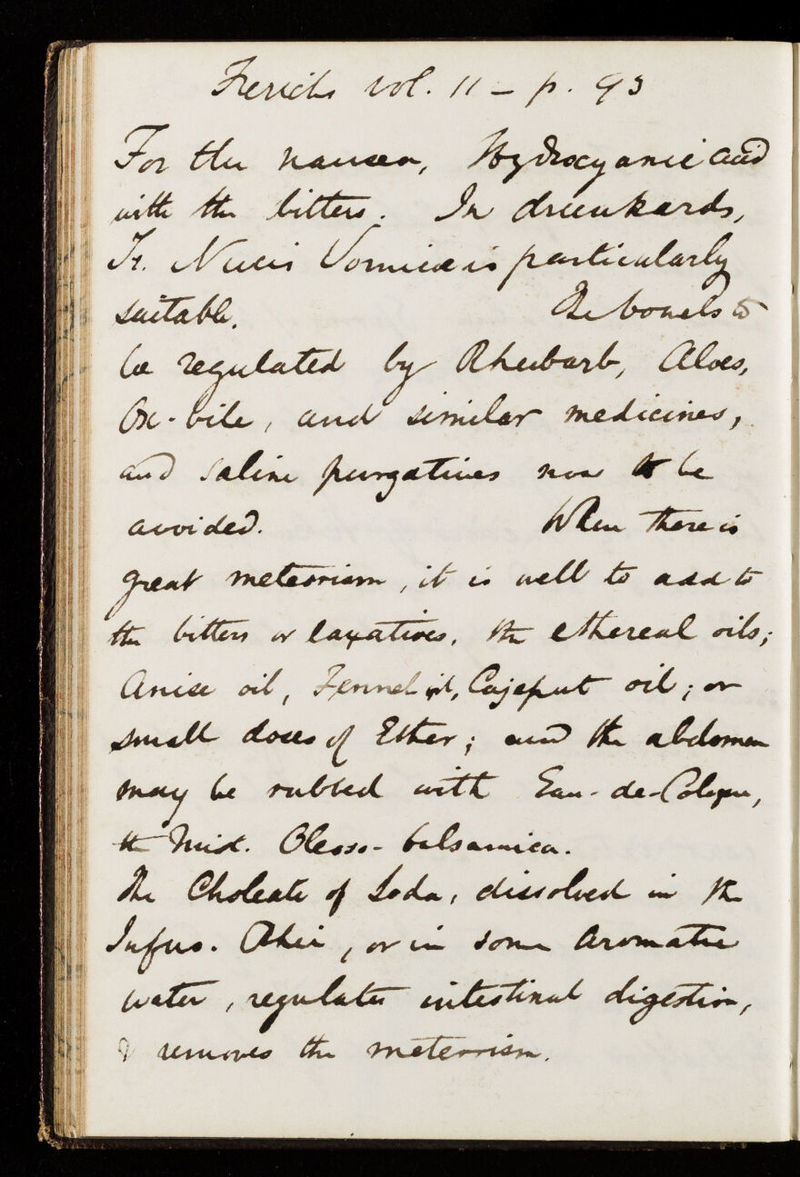 Frerichs vol. 11 - p. 93
For the nausea, Hydrocyanic acid
with the bitters. In drunkards,
Tr. Nucis Vomicae is particularly
suitable. The bowels to
be regulated by Rhubarb, Aloes,
Ox-bile, and similar medicines,
and saline purgatives now to be
avoided. When there is
great meteorism, it is well to add to
the bitters or laxatives, the ethereal oils;
Anise oil, Fennel oil, Cajeput oil; or
small doses of Ether; and the abdomen
may be rubbed with Eau-de-Cologne,
the Mixt. Oleoso-balsamica.
The Choleate of Soda, dissolved in the
Infus. Rhei, or in some Aromatic
water, regulates intestinal digestion,
& removes the meteorism.